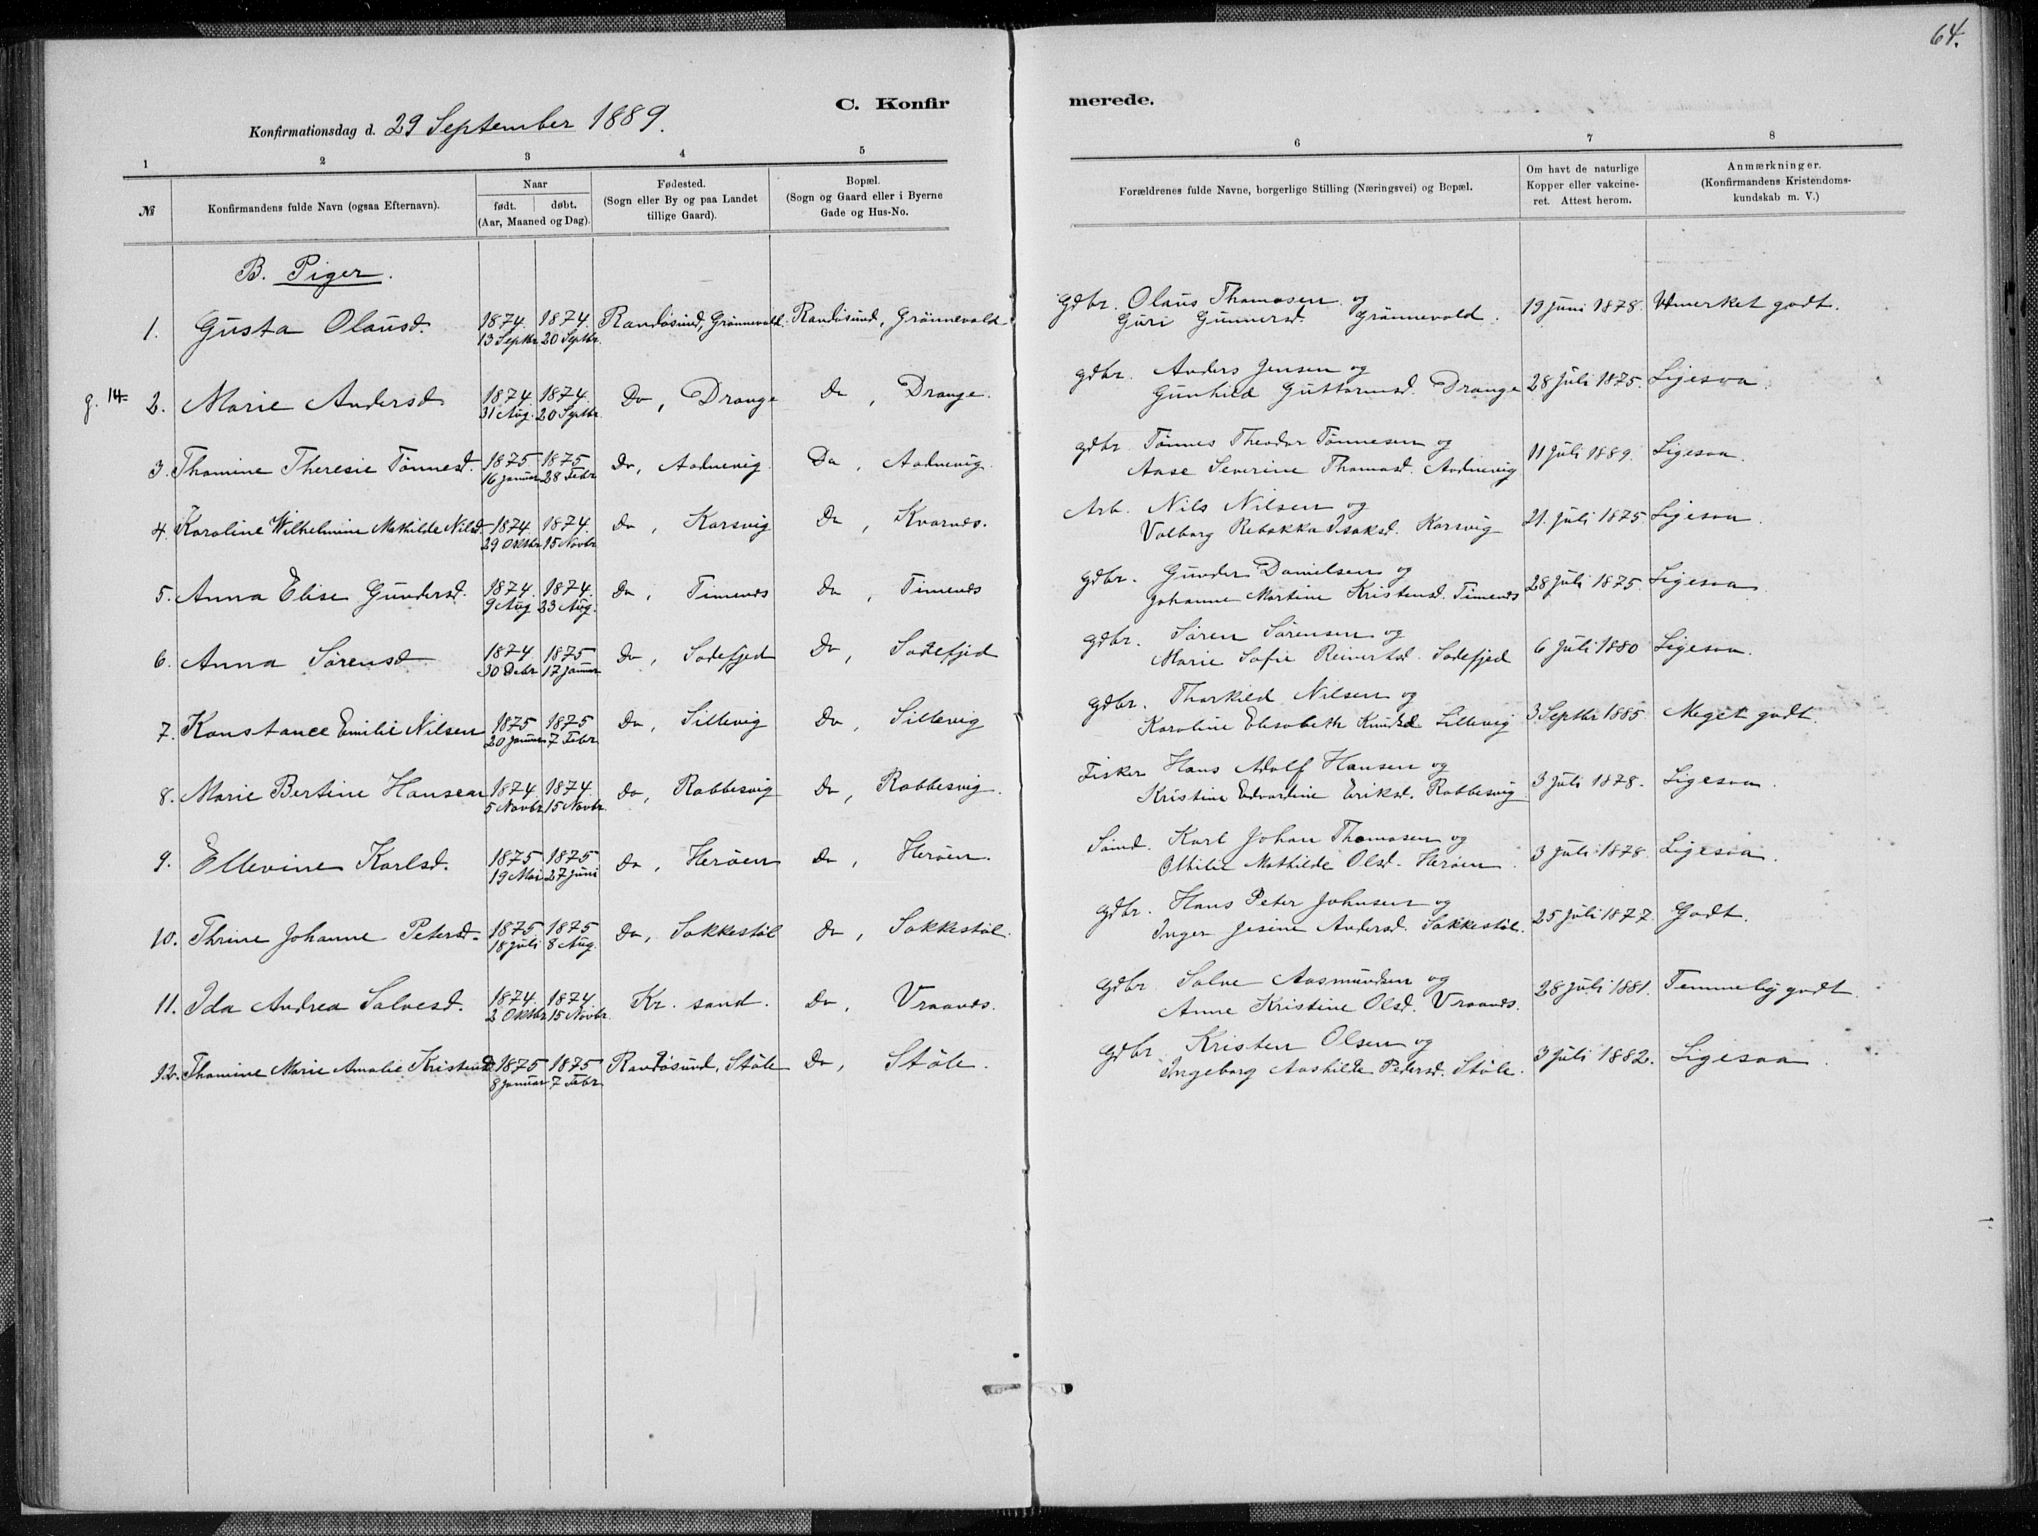 64.
C. Konfir merede.
Konfirmationsdag d. 29 September 1889.
1 2 3 4 5 6 7 8
№
Konfirmandens fulde Navn (ogsaa Efternavn).
Naar
født. døbt.
(Aar, Maaned og Dag).
Fødested.
(Sogn eller By og paa Landet
tillige Gaard).
Bopæl.
(Sogn og Gaard eller i Byerne
Gade og Hus-No.
Forældrenes fulde Navne, borgerlige Stilling (Næringsvei) og Bopæl.
Om havt de naturlige
Kopper eller vakcine-
ret. Attest herom.
Anmærkninger.
(Konfirmandens Kristendoms-
kundskab m. V.)
B. Piger.
1. Gusta Olausd. 1874. 13 Septbr. 1874. 20 Septbr. Randøsund, Grønnevold. Randøsund, Grønnevold
gdbr. Olaus Thomasen og
Guri Gunnersd. Grønnevold. 19 Juni 1878. Utmerket godt.
g. 14 2. Marie Andersd. 1874. 31 Aug. 1874. 20 Septbr. Do, Drange Do, Drange.
gdbr. Anders Jensen og
Gunhild Guttormsd. Drange 28 Juli 1875. Ligesaa.
3. Thomine Theresie Tønnesd. 1875 16 Januar 1875 28 Febr. Do, Aodnevig. Do, Aodnevig.
gdbr. Tønnes Theodor Tønnesen og
Aase Severine Thomasd. Aodnevig 11 Juli 1889. Ligesaa.
4. Karoline Wilhelmine Mathilde Nilsd. 1874. 29 Oktbr. 1874. 15 Novbr. Do, Korsvig Do, Kvarnes.
Arb. Nils Nilsen og
Valborg Rebekka Isaksd. Korsvig 21. Juli 1875 Ligesaa.
5. Anna Elise Gundersd. 1874. 9 Aug. 1874. 23 Aug. Do, Timenes Do, Timenes
gdbr. Gunder Danielsen og
Johanne Martine Kristensd. Timenes 28 Juli 1875. Ligesaa
6. Anna Sørensd. 1874. 30 Debr 1875 17 Januar Do, Sodefjed Do, Sodefjed
gdbr. Søren Sørensen og
Marie Sofie Reinertsd. Sodefjed 6 Juli 1880 Ligesaa.
7. Konstance Emilie Nilsen 1875 20 Januar 1875 7 Febr Do, Sillevig Do, Sillevig
gdbr. Thorkild Nilsen og
Karoline Elisabeth Knudsd. Sillevig 3 Septbr 1885. Meget godt.
8. Marie Bertine Hansen 1874. 5 Novbr. 1874. 15 Novbr. Do, Robbesvig Do, Robbesvig.
Fisker Hans Adolf Hansen og
Kristine Edvardine Eriksd. Robbesvig 3 Juli 1878. Ligesaa.
9. Ellevine Karlsd. 1875 19 Mai 1875 27 Juni Do, Herøen Do, Herøen.
Sømd. Karl Johan Thomasen og
Othilie Mathilde Olsd. Herøen. 3 Juli 1878. Ligesaa.
10. Thrine Johanne Petersd. 1875 18 Juli 1875 8 Aug. Do, Sokkestøl Do, Sokkestøl.
gdbr. Hans Peter Johnsen og
Inger Jesine Andersd. Sokkestøl. 25 Juli 1877. Godt.
11. Ida Andrea Salvesd. 1874. 2 Oktbr. 1874. 15 Novbr. Kr. sand. Do, Vraanes.
gdbr. Salve Aasmundsen og
Anne Kristine Olsd. Vraanes. 28 Juli 1881. Temmelig godt.
12. Thomine Marie Amalie Kristensd. 1875 8 Januar 1875 7 Febr. Randøsund, Støle Do, Støle.
gdbr. Kristen Olsen og
Ingeborg Aashilde Pedersd. Støle. 3 Juli 1882. Ligesaa.